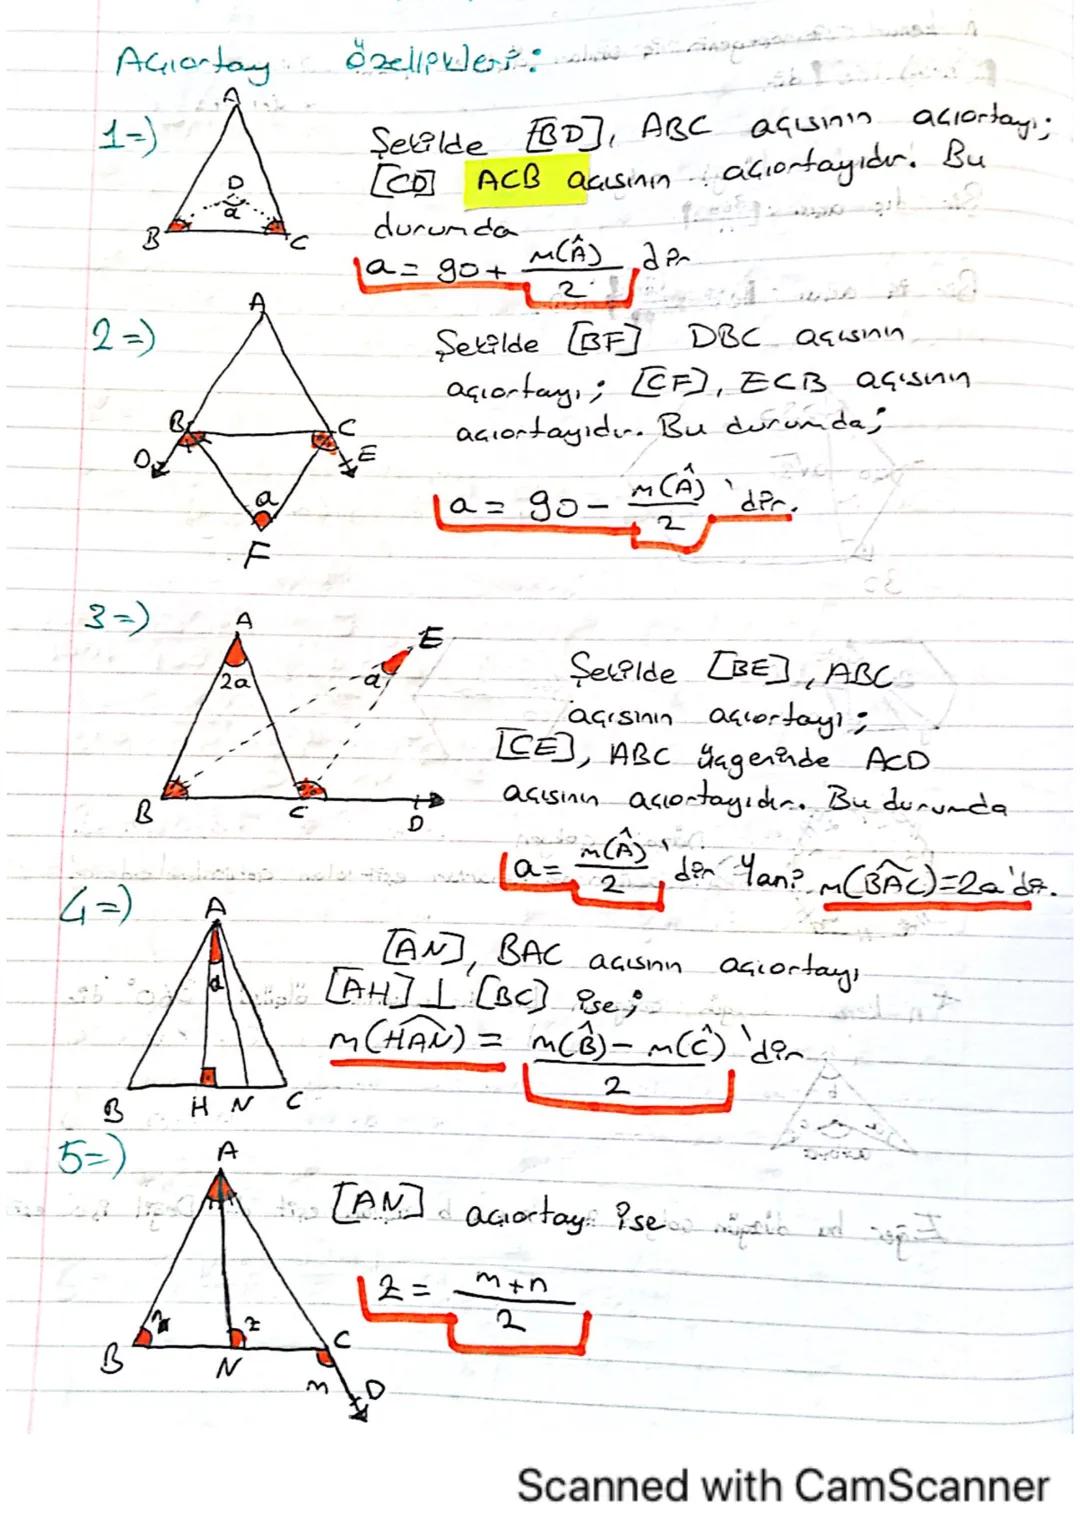 Açıortay özellikleri:
1=)
A
D
a
B
C
Şekilde [BD], ABC açısının açıortayı;
[CD] ACB açısının açıortayıdır. Bu
durumda
a = 90 + m(Â) / 2 dir
2=)
A
B
C
D
E
a
F
Şekilde [BF] DBC açısının
açıortayı; [CF], ECB açısının
açıortayıdır. Bu durumda;
a = 90 - m(Â) / 2 'dir.
3=)
A
2a
E
a
B
C
D
Şekilde [BE], ABC
açısının açıortayı;
[CE], ABC üçgeninde ACD
açısının açıortayıdır. Bu durumda
a = m(Â) / 2 'dir Yani m(BÂC)=2a'dır.
4=)
A
a
B H N C
[AN], BAC açısının açıortayı
[AH] ⊥ [BC] ise;
m(HAN) = m(B̂) - m(Ĉ) / 2 'dir
5=)
A
z
B
N
C
m
D
[AN] açıortay ise
z = m+n / 2
Scanned with CamScanner